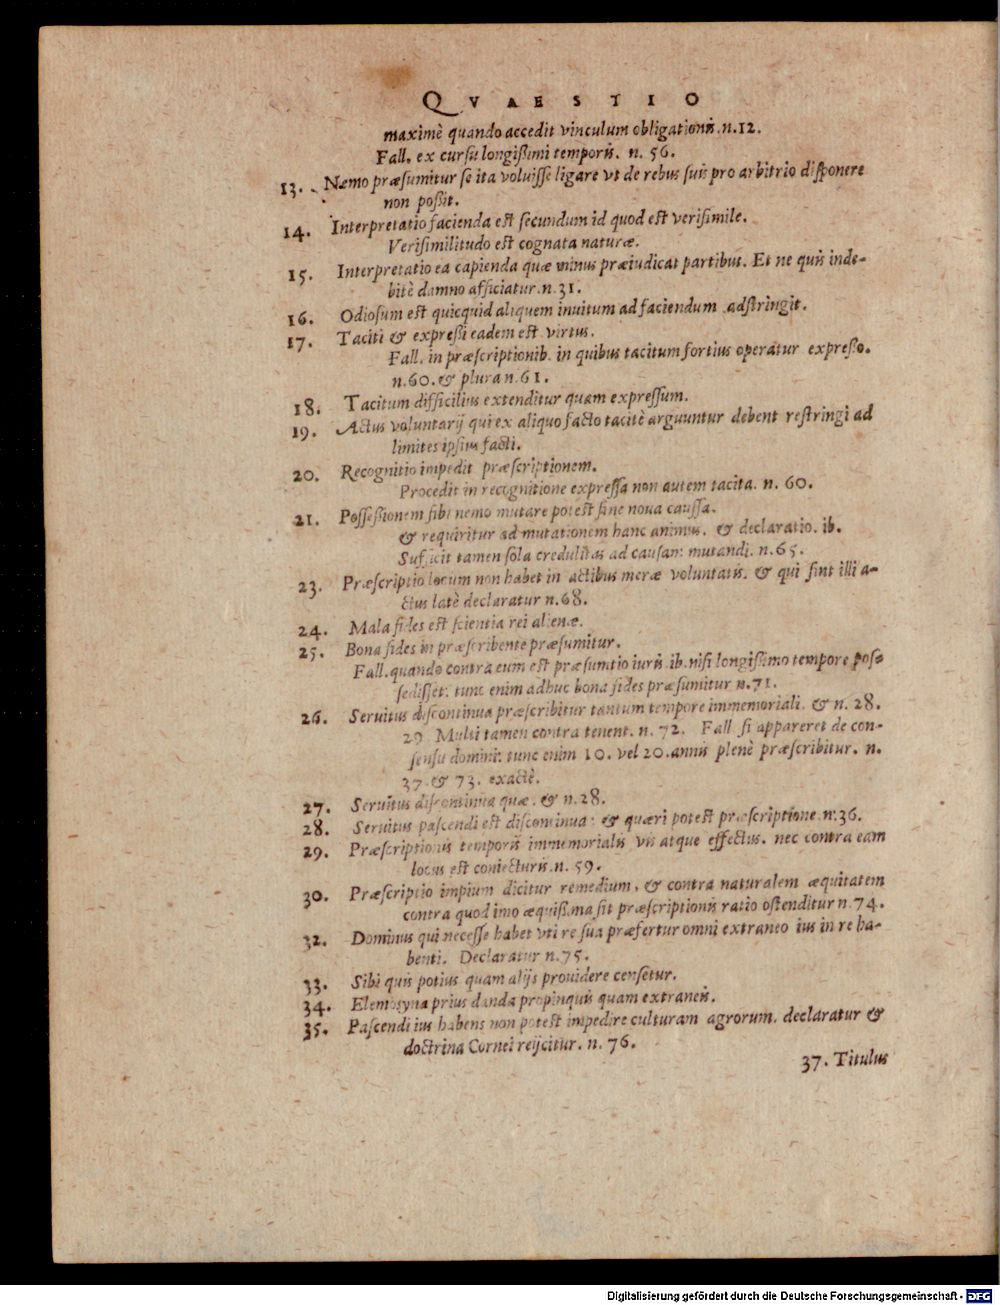 QVAESTIO
maximè quando accedit vinculum obligationis. n. 12.
Fall. ex cursu longissimi temporis. n. 56.
13. Nemo præsumitur se ita voluisse ligare vt de rebus suis pro arbitrio disponere
non possit.
14. Interpretatio facienda est secundum id quod est verisimile.
Verisimilitudo est cognata naturæ.
15. Interpretatio ea capienda quæ minus præiudicat partibus. Et ne quis inde-
bitè damno afficiatur. n. 31.
16. Odiosum est quicquid aliquem inuitum ad faciendum adstringit.
17. Taciti & expressi eadem est virtus.
Fall. in præscriptionib. in quibus tacitum fortius operatur expresso.
n. 60. & plura n. 61.
18. Tacitum difficilius extenditur quam expressum.
19. Actus voluntarij qui ex aliquo facto tacitè arguuntur debent restringi ad
limites ipsius facti.
20. Recognitio impedit præscriptionem.
Procedit in recognitione expressa non autem tacita. n. 60.
21. Possessionem sibi nemo mutare potest sine noua caussa.
& requiritur ad mutationem hanc animus. & declaratio. ib.
Sufficit tamen sola credulitas ad causam mutandi. n. 65.
23. Præscriptio locum non habet in actibus meræ voluntatis. & qui sint illi a-
ctus latè declaratur n. 68.
24. Mala fides est scientia rei alienæ.
25. Bona fides in præscribente præsumitur.
Fall. quando contra eum est præsumtio iuris. ib. nisi longissimo tempore pos-
sedisset: tunc enim adhuc bona fides præsumitur n. 71.
26. Seruitus discontinua præscribitur tantum tempore immemoriali. & n. 28.
29. Multi tamen contra tenent. n. 72. Fall. si appareret de con-
sensu domini: tunc enim 10. vel 20. annis plenè præscribitur. n.
37. & 73. exactè.
27. Seruitus discontinua quæ. & n. 28.
28. Seruitus pascendi est discontinua: & quæri potest præscriptione. n. 36.
29. Præscriptionis temporis immemorialis vis atque effectus. nec contra eam
locus est coniecturis. n. 59.
30. Præscriptio impium dicitur remedium, & contra naturalem æquitatem
contra quod imo æquissima sit præscriptionis ratio ostenditur n. 74.
32. Dominus qui necesse habet vti re sua præfertur omni extraneo ius in re ha-
benti. Declaratur n. 75.
33. Sibi quis potius quam alijs prouidere censetur.
34. Elemosyna prius danda propinquis quam extraneis.
35. Pascendi ius habens non potest impedire culturam agrorum. declaratur &
doctrina Cornei reijcitur. n. 76.
37. Titulus
Digitalisierung gefördert durch die Deutsche Forschungsgemeinschaft - DFG